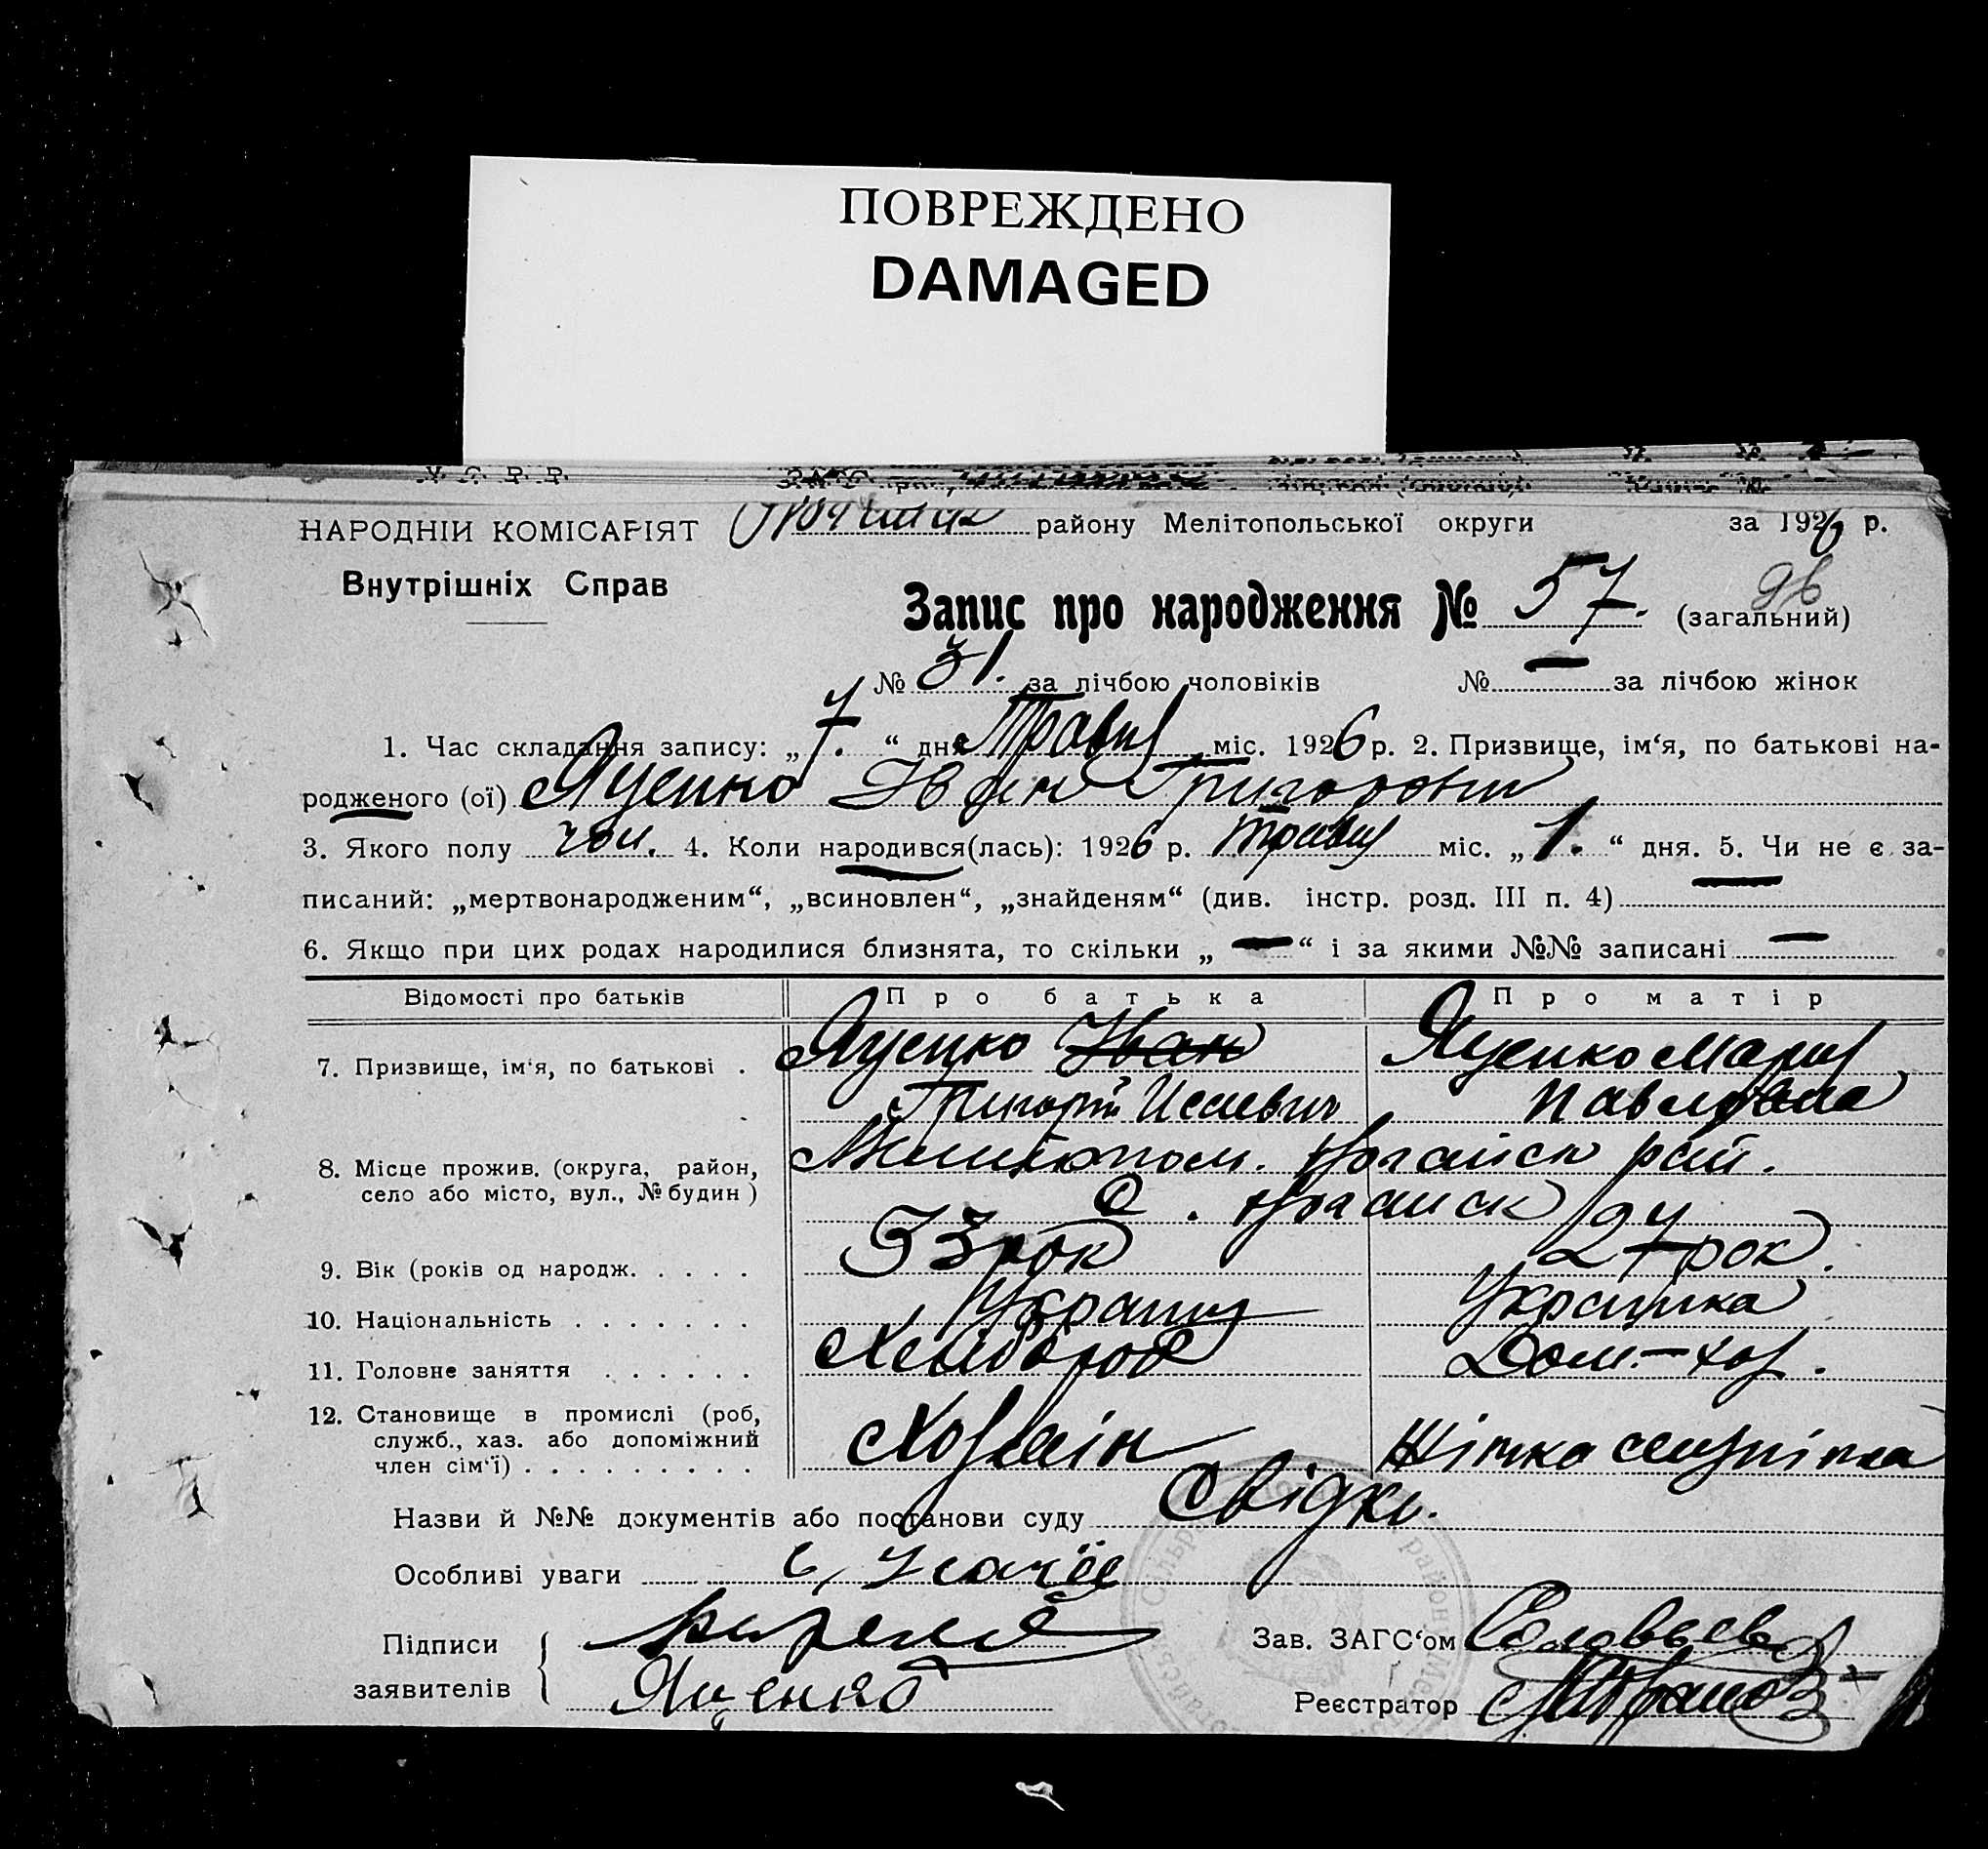 ПОВРЕЖДЕНО
DAMAGED
У. С. Р. Р. ЗАГС
НАРОДНІЙ КОМІСАРІЯТ району Мелітопольської округи за 1926 р.
Внутрішніх Справ
96
Запис про народження № 57. (загальний)
№ 31. за лічбою чоловіків № — за лічбою жінок
1. Час складання запису: „ 7. “ дня Травня міс. 1926 р. 2. Призвище, ім‘я, по батькові на-
родженого (ої) Яценко Іван Григорович
3. Якого полу чол. 4. Коли народився(лась): 1926 р. травня міс. „ 1. “ дня. 5. Чи не є за-
писаний: „мертвонародженим“, „всиновлен“, „знайденям“ (див. інстр. розд. III п. 4) —
6. Якщо при цих родах народилися близнята, то скільки „ — “ і за якими №№ записані —
Відомості про батьків Про батька Про матір
7. Призвище, ім‘я, по батькові . Яценко Іван Яценко Мария
Григорій Исаевич Павловна
8. Місце прожив. (округа, район, Мелітопол. Ногайск рай.
село або місто, вул., № будин) с. Ногайск
9. Вік (років од народж. . . . . 33 рок 27 рок.
10. Національність . . . . . . . Украин Украинка
11. Головне заняття . . . . . . Хлибороб Дом.-хоз.
12. Становище в промислі (роб,
служб., хаз. або допоміжний Хозяін
член сім‘ї) . . . . . . . . .
Назви й №№ документів або постанови суду Свідки.
Особливі уваги
Підписи Зав. ЗАГС‘ом Соловьев
заявителів Яценко Реєстратор